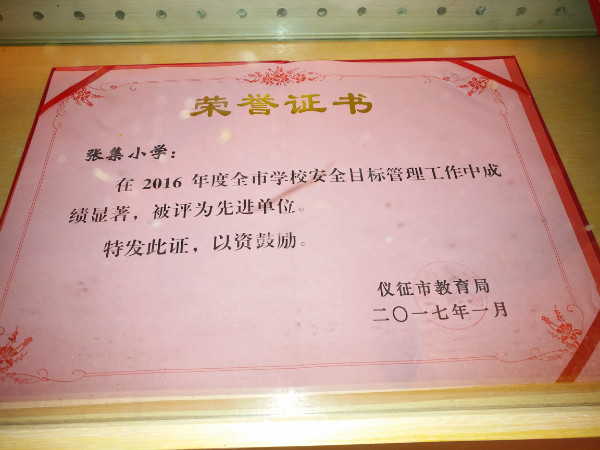 荣誉证书
张集小学：
在 2016 年度全市学校安全目标管理工作中成
绩显著，被评为先进单位。
特发此证，以资鼓励。
仪征市教育局
二〇一七年一月